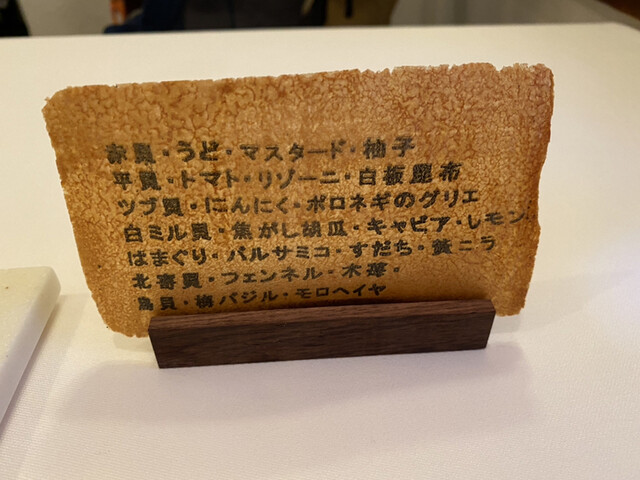 赤貝・うど・マスタード・柚子
平貝・トマト・リゾーニ・白板昆布
ツブ貝・にんにく・ポロネギのグリエ
白ミル貝・焦がし胡瓜・キャビア・レモン
はまぐり・バルサミコ・すだち・黄ニラ
北寄貝・フェンネル・木薄・
鳥貝・梅バジル・モロヘイヤ